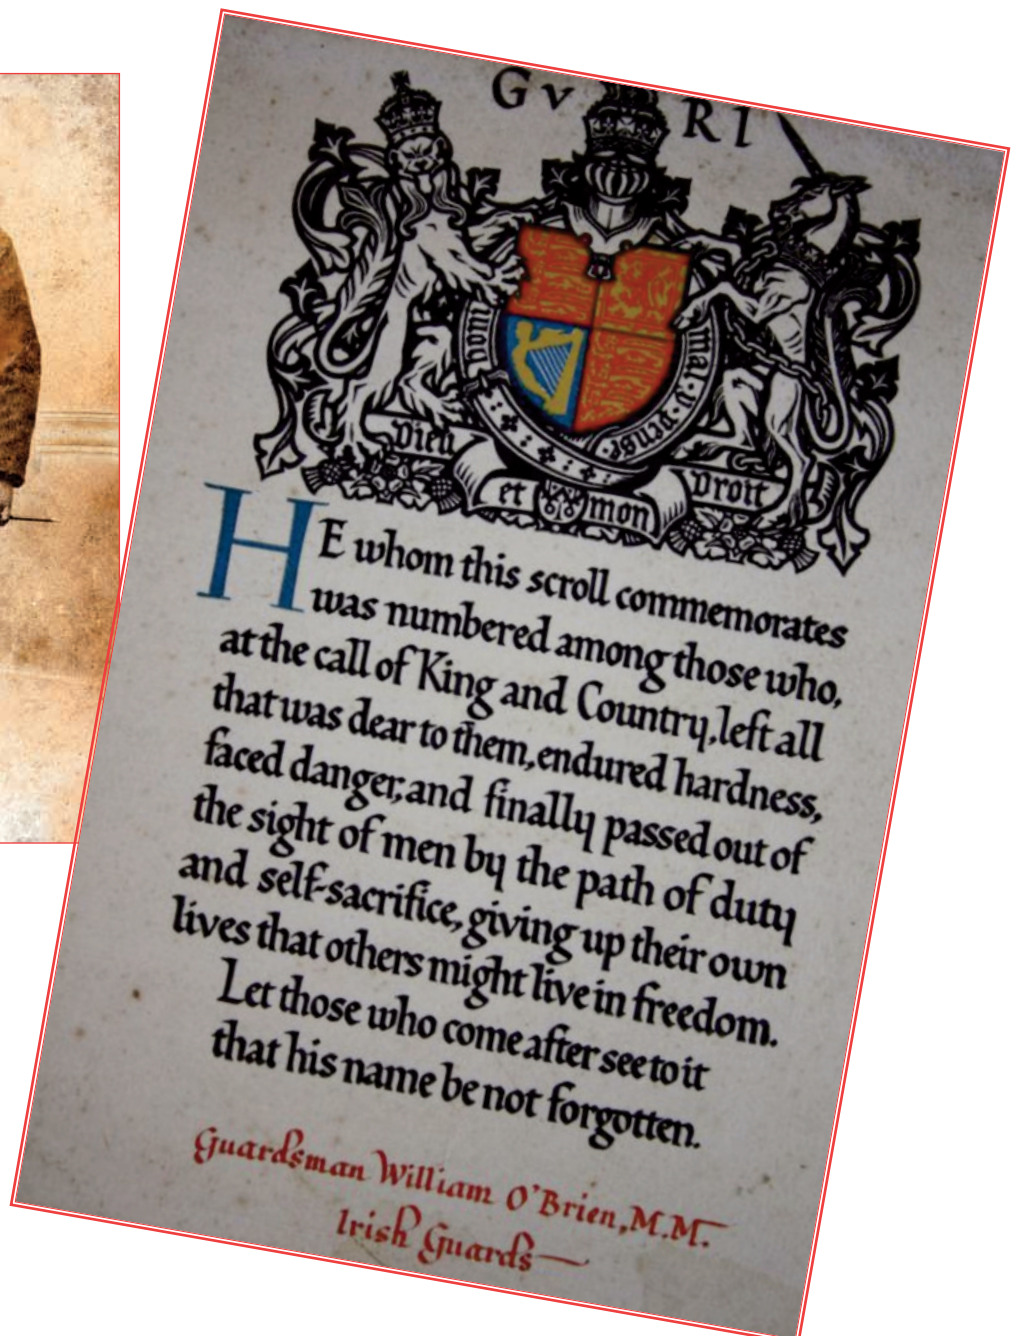 GV RI
Dieu et mon Droit
HE whom this scroll commemorates
was numbered among those who,
at the call of King and Country, left all
that was dear to them, endured hardness,
faced danger, and finally passed out of
the sight of men by the path of duty
and self-sacrifice, giving up their own
lives that others might live in freedom.
Let those who come after see to it
that his name be not forgotten.
Guardsman William O'Brien, M.M.
Irish Guards